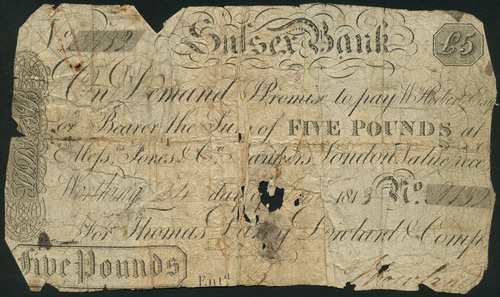 No
Sussex Bank
£5
On Demand I Promise to pay
or Bearer the Sum of FIVE POUNDS at
Mess.rs Jones & Co. Bankers London Value rec
Worthing day of 1813 No.
For Thomas Rowland & Comp
Five Pounds
Ent.d